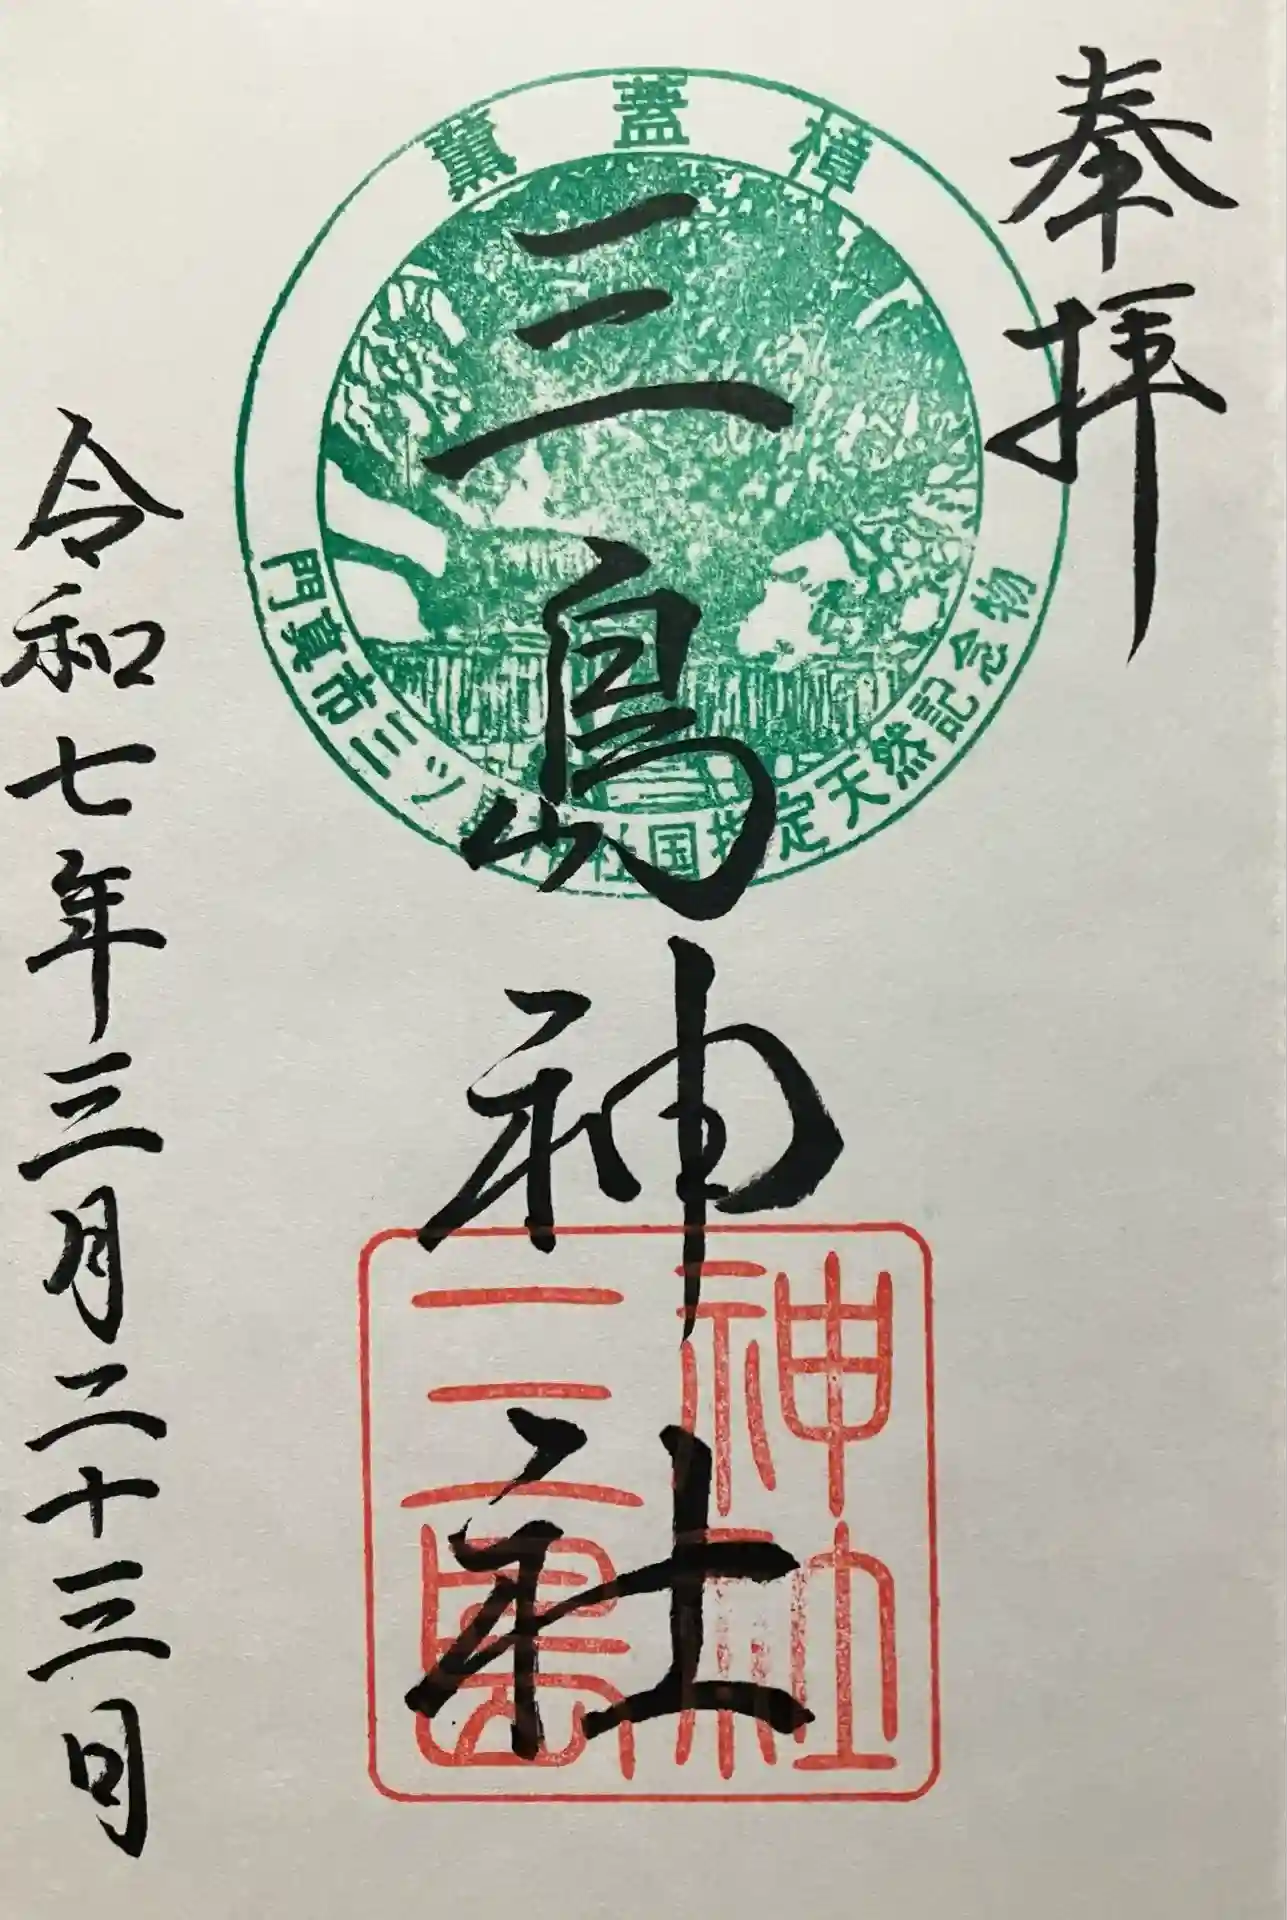 奉拝
薫蓋樟
三島神社
門真市三ツ島神社国指定天然記念物
神社
三島
令和七年三月二十三日